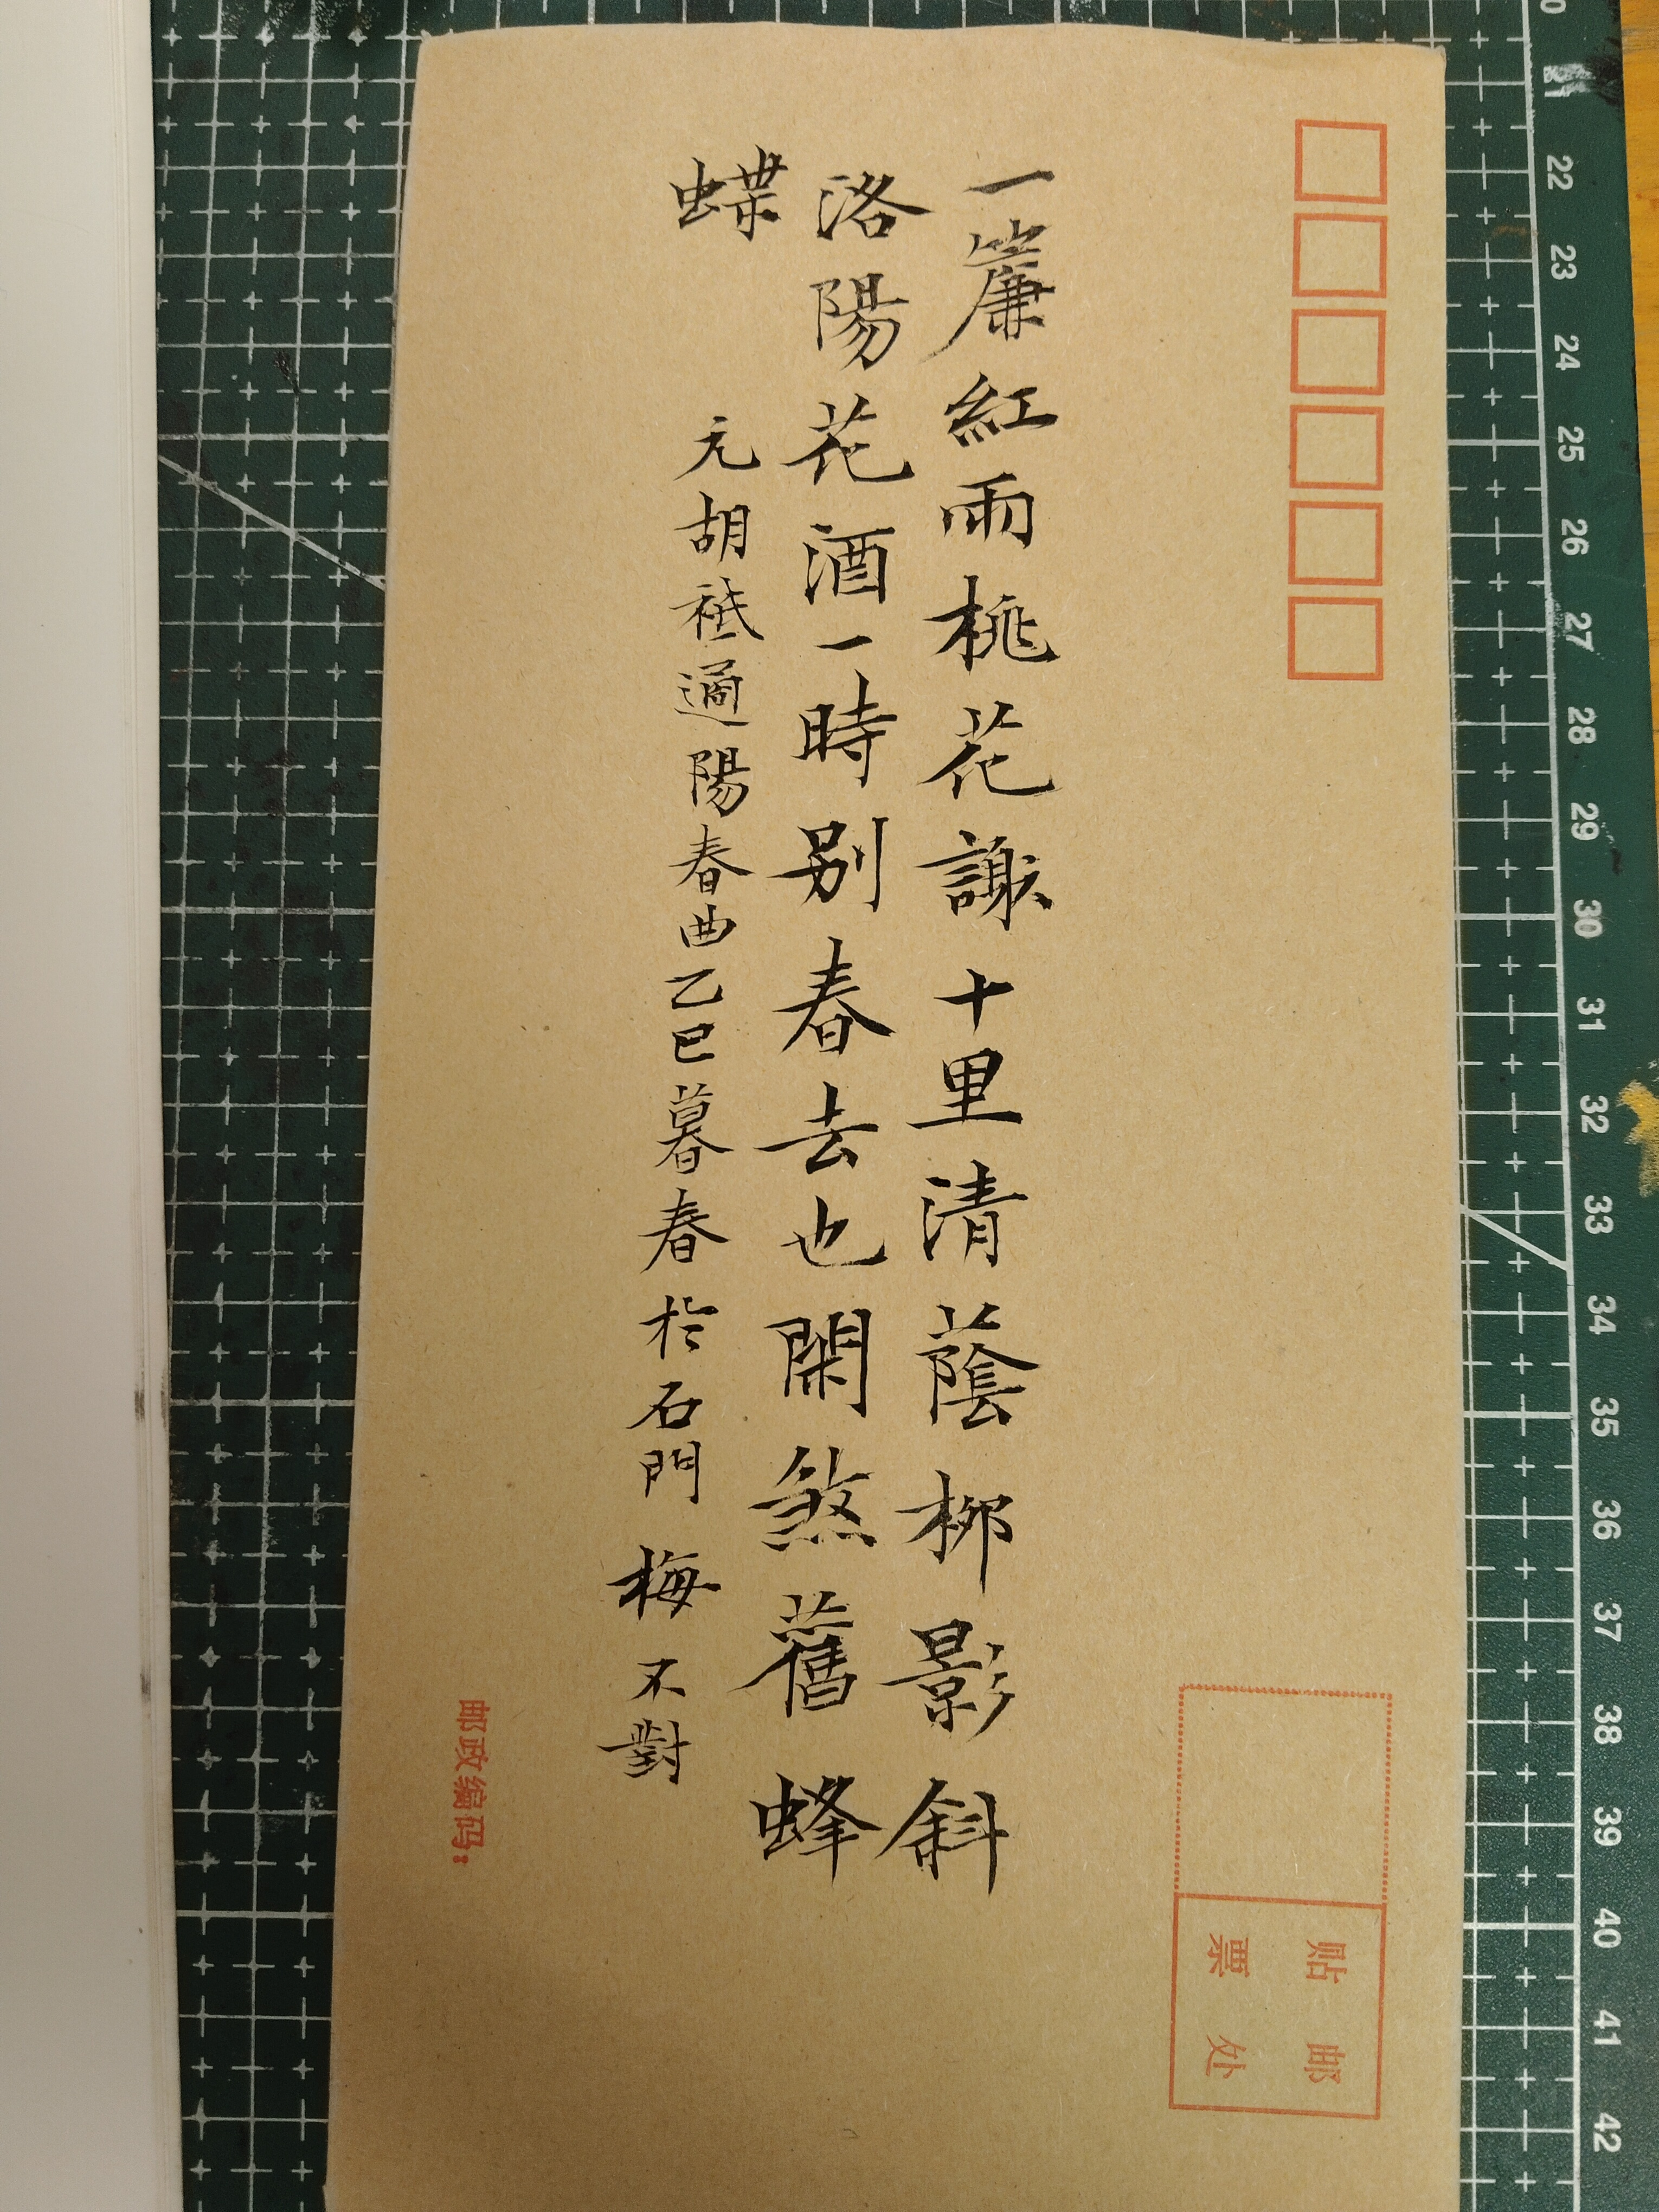 一簾紅雨桃花謝十里清蔭柳影斜
洛陽花酒一時别春去也閑煞舊蜂
蝶
元胡祗遹陽春曲乙巳暮春於石門 梅不對
贴邮
票处
邮政编码:
21
22
23
24
25
26
27
28
29
30
31
32
33
34
35
36
37
38
39
40
41
42